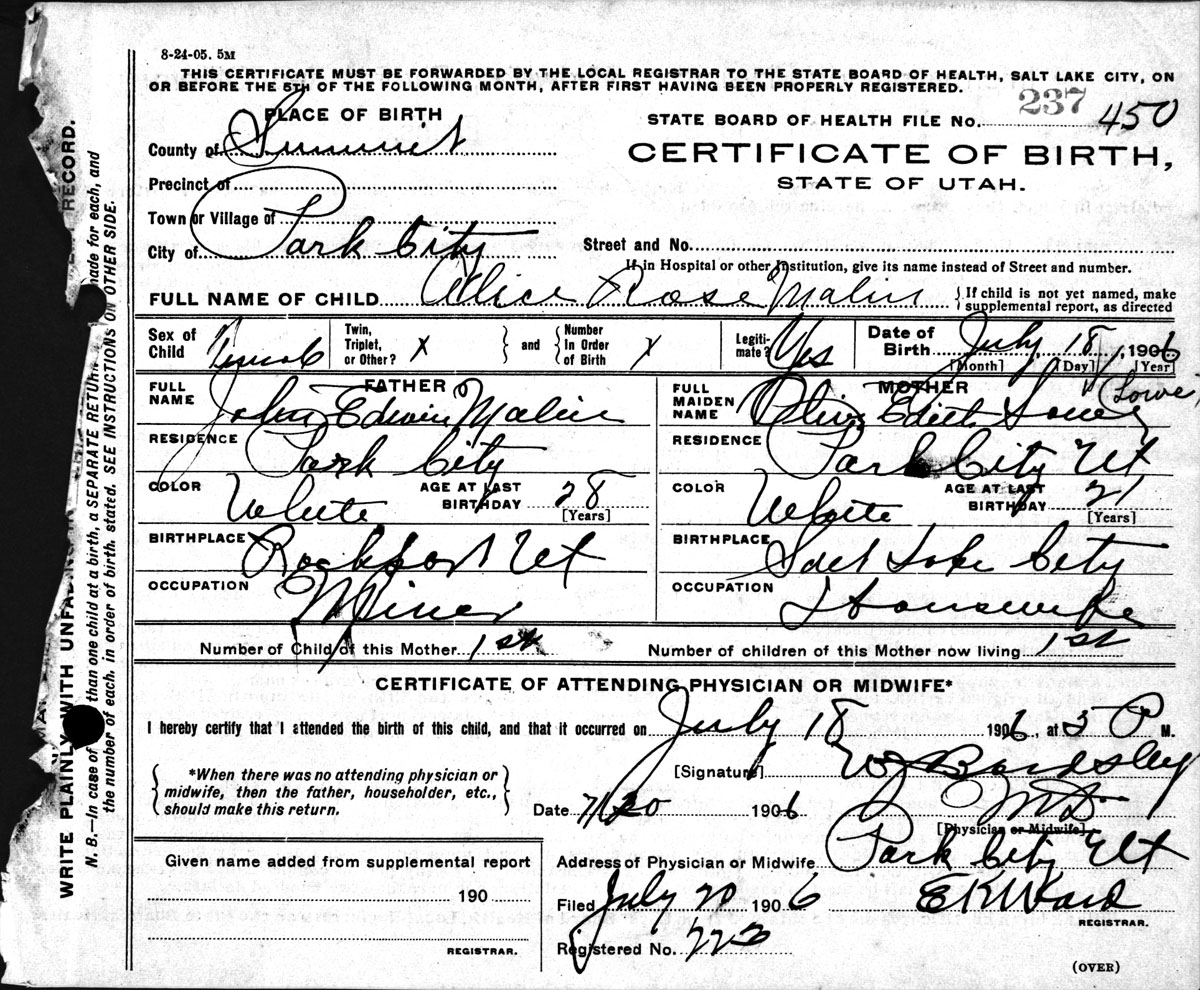 8-24-05. 5M
THIS CERTIFICATE MUST BE FORWARDED BY THE LOCAL REGISTRAR TO THE STATE BOARD OF HEALTH, SALT LAKE CITY, ON
OR BEFORE THE 5TH OF THE FOLLOWING MONTH, AFTER FIRST HAVING BEEN PROPERLY REGISTERED.
PLACE OF BIRTH
237
STATE BOARD OF HEALTH FILE No. 450
County of Summit
CERTIFICATE OF BIRTH,
STATE OF UTAH.
Precinct of
Town or Village of
City of Park City
Street and No.
If in Hospital or other Institution, give its name instead of Street and number.
FULL NAME OF CHILD Alice Rose Malin
If child is not yet named, make
supplemental report, as directed
Sex of Child Female
Twin, Triplet, or Other? X
and
Number In Order of Birth X
Legitimate? Yes
Date of Birth July 18, 1906
[Month] [Day] [Year]
FATHER
FULL NAME John Edwin Malin
RESIDENCE Park City
COLOR White
AGE AT LAST BIRTHDAY 28
[Years]
BIRTHPLACE Rockport Ut
OCCUPATION Miner
MOTHER
(Lowe)
FULL MAIDEN NAME Olive Edith
RESIDENCE Park City Ut
COLOR White
AGE AT LAST BIRTHDAY 21
[Years]
BIRTHPLACE Salt Lake City
OCCUPATION Housewife
Number of Child of this Mother 1st
Number of children of this Mother now living 1st
CERTIFICATE OF ATTENDING PHYSICIAN OR MIDWIFE*
I hereby certify that I attended the birth of this child, and that it occurred on July 18 1906, at 5 P M.
*When there was no attending physician or
midwife, then the father, householder, etc.,
should make this return.
[Signature] Bardsley
MD
[Physician or Midwife]
Date 7/20 1906
Address of Physician or Midwife Park City Ut
Given name added from supplemental report
190
REGISTRAR.
Filed July 20 1906 EKWard
REGISTRAR.
Registered No. 223
(OVER)
WRITE PLAINLY WITH UNFADING
RECORD.
N. B.—In case of more than one child at a birth, a SEPARATE RETURN made for each, and
the number of each, in order of birth, stated. SEE INSTRUCTIONS ON OTHER SIDE.